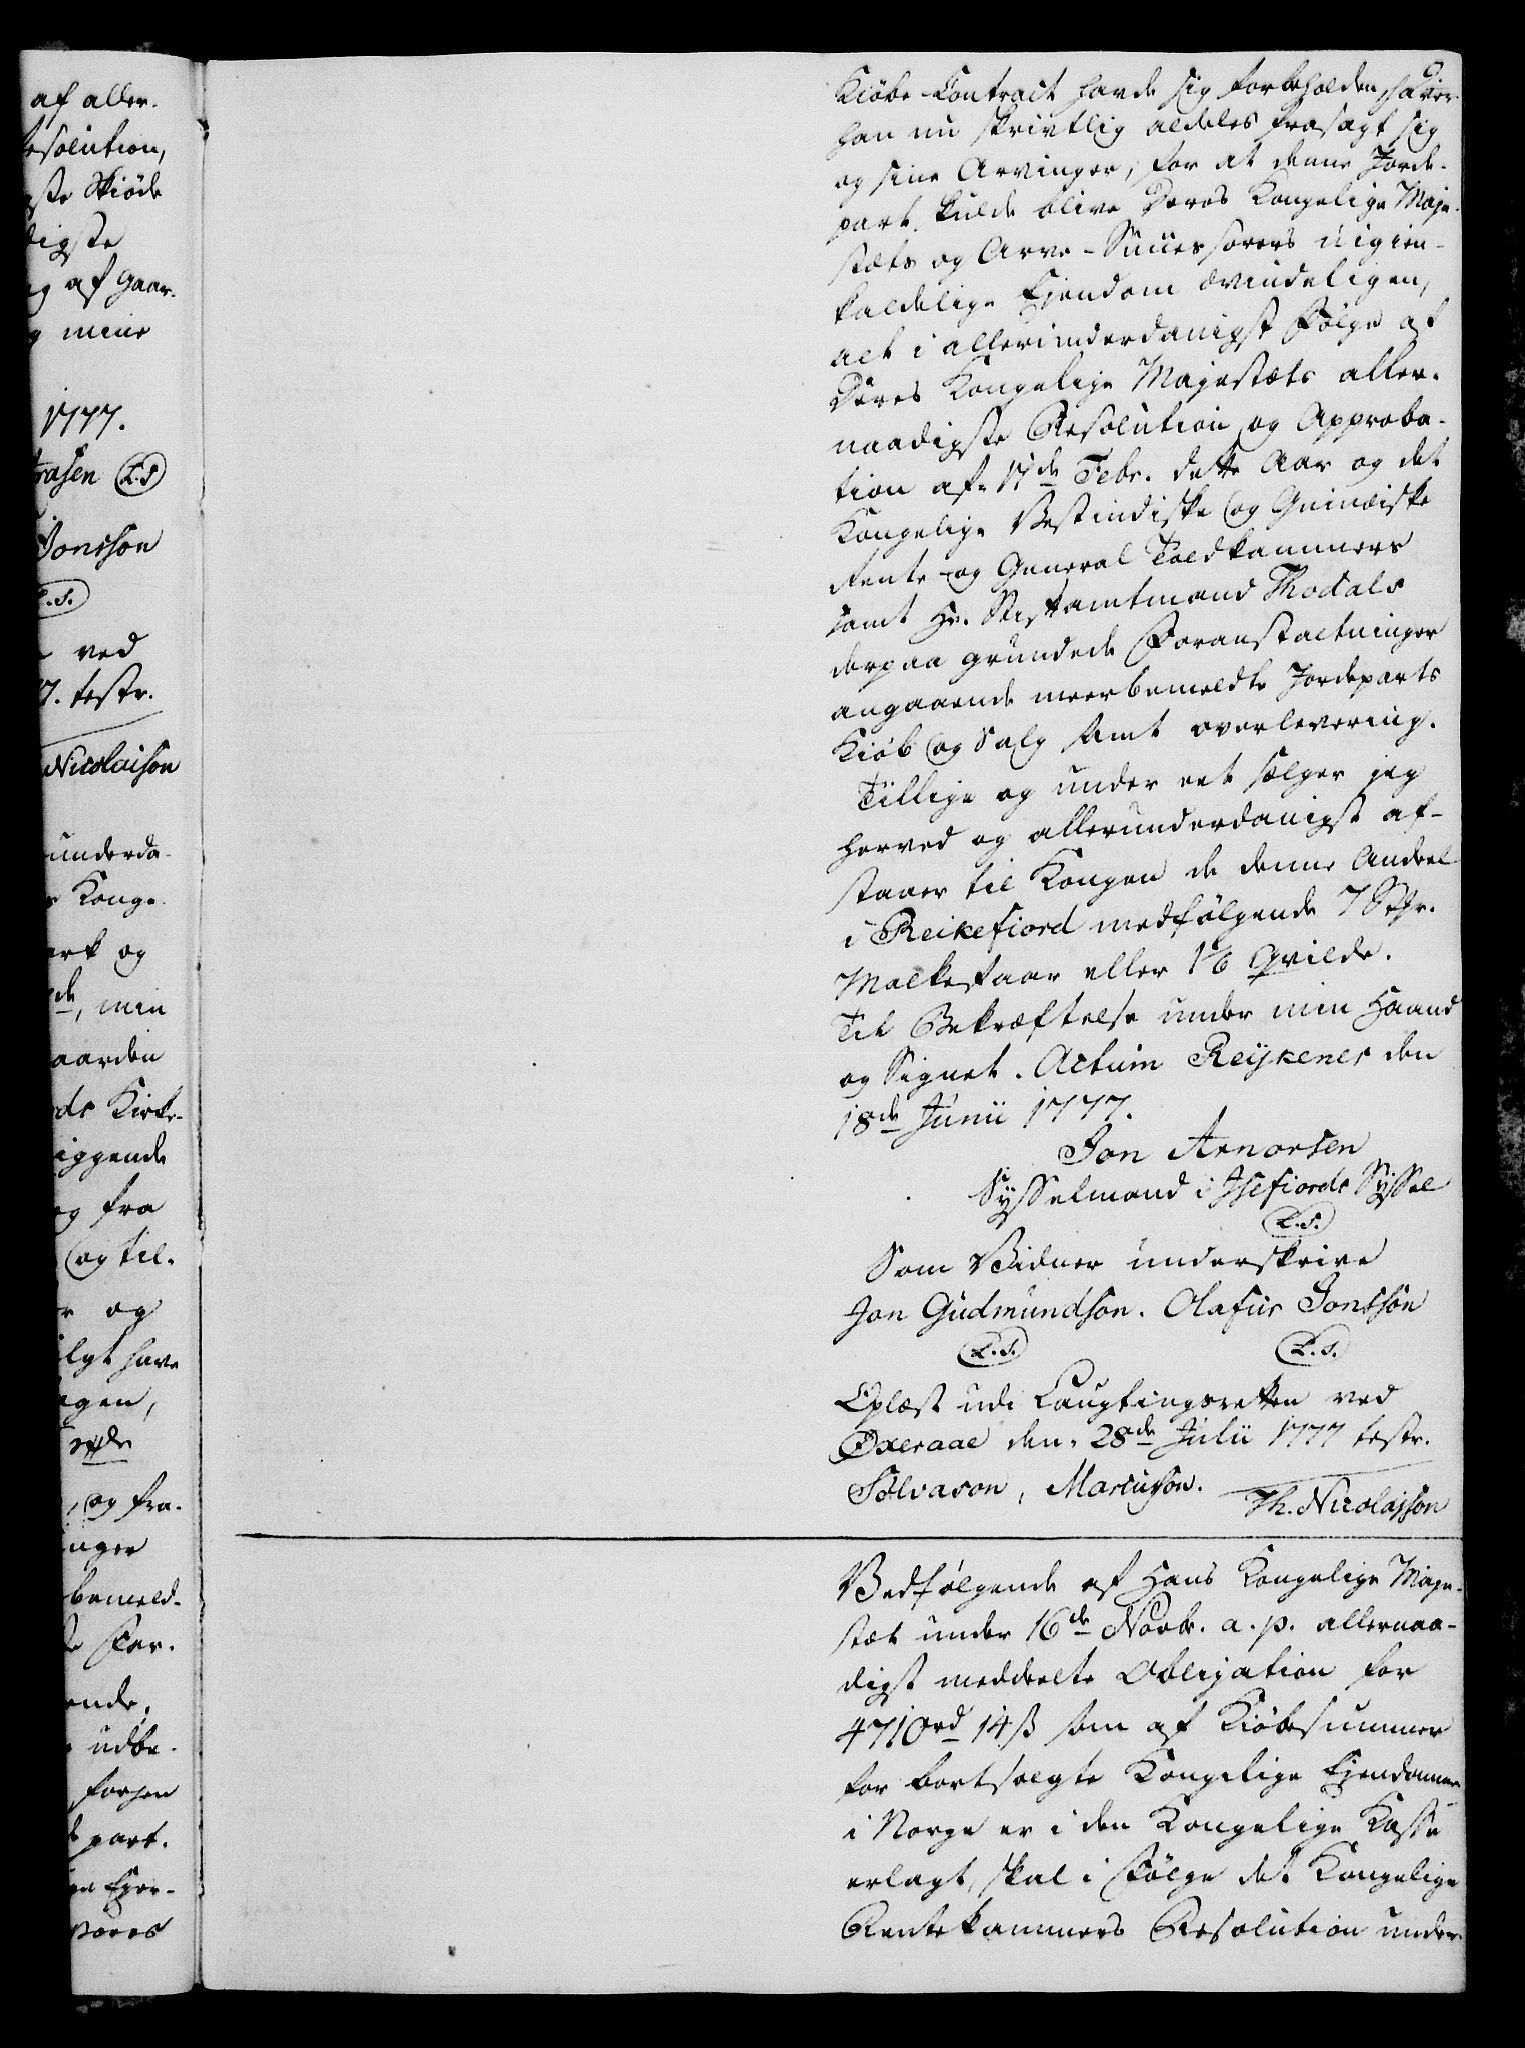 af aller-
esolution,
ste Skiöde
digste
og af Gaar-
g mine
1777.
rasen L.S
Jonsson
L.S.
ved
7. testr.
Nicolaison
underda-
Konge
ark og
de, min
aarden
ds Kirke-
liggende
og fra
og til-
r og
lgt have
ngen,
og fra-
inger
bemeld-
ende,
udbe-
forhen
part.
Kiöbe-Contract havde sig forbeholden, haver
han nu skrivtlig aldeles frasagt sig
og sine Arvinger, for at denne Jorde-
part kulde blive Deres Kongelige Maje-
stæts og Arve-Successorers uigien-
kaldelige Ejendom ævindeligen,
alt i allerunderdanigst Følge af
Deres Kongelige Majestæts aller-
naadigste Resolution og Approba-
tion af 17de Febr. dette Aar og det
Kongelige Vestindiske og Guineiske
Rente- og General Toldkammers
samt Hr. Stiftamtmand Thodals
derpaa grundede Foranstaltninger
angaaende meerbemeldte Jordeparts
Kiöb og Salg samt overlevering.
Tillige og under eet sælger jeg
herved og allerunderdanigst af-
staaer til Kongen de denne Andeel
i Reikefiord medfølgende 7 Stkr.
Malkefaar eller 1 1/6 Qvilde.
Til Bekræftelse under min Haand
og Signet. Actum Reykenes den
18de Junii 1777.
Jon Arnorsen
Sysselmand i Isefiords Syssel
L.S.
Som Vidner underskrive
Jon Gudmundson. Olafur Jonsson
L.S. L.S.
Oplæst udi Laugtingsretten ved
Øxeraae den 28de Julii 1777 testr.
Sølvason, Marcuson. Th. Nicolajson
Vedfølgende af Hans Kongelige Maje-
stæt under 16de Novbr. a. p. allernaa-
digst meddeelte Obligation for
4710 rd 14 ß som af Kiöbesummer
for bortsolgte Kongelige Ejendomme
i Norge er i den Kongelige Kasse
erlagt, skal i Følge det Kongelige
Rentekammers Resolution under